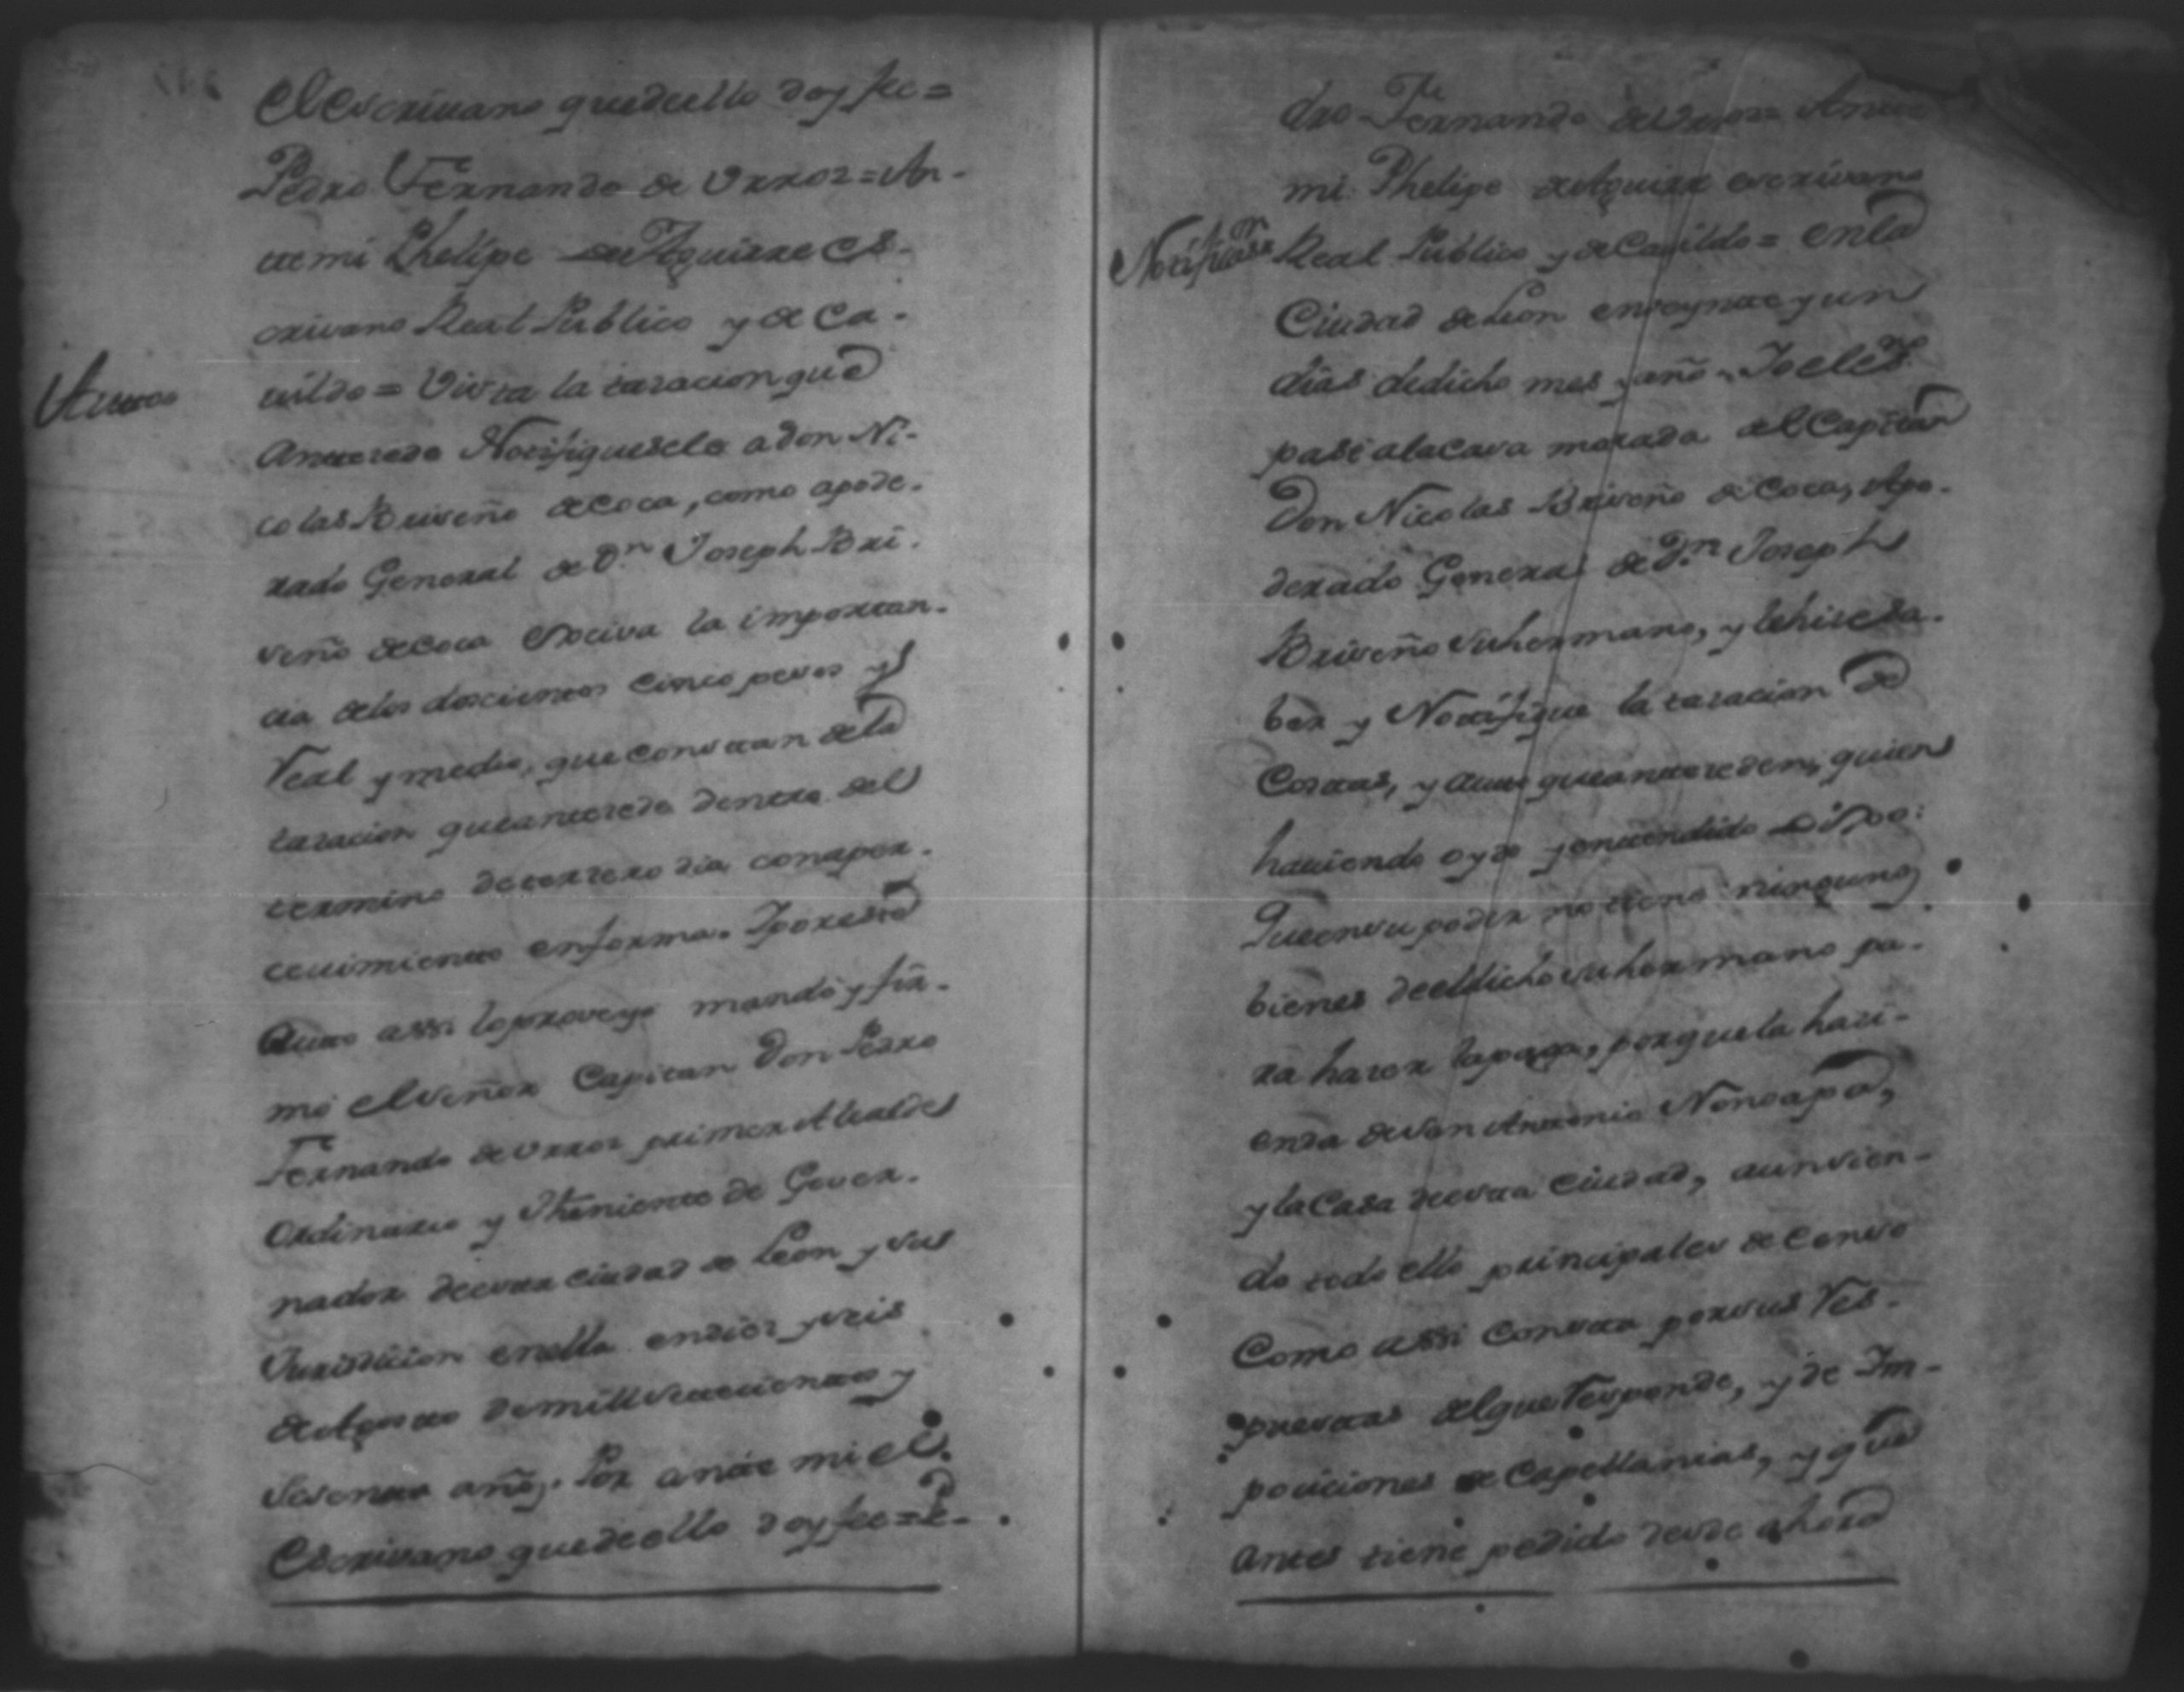 el escrivano que de ello doy fee =
Pedro Fernando de Urroz = An-
te mi Phelipe de Aguirre es-
crivano Real Publico y de Ca-
Autto
vildo = Vista la tazacion que
antecede Notifiquesele a don Ni-
colas Briseño de Coca, como apode-
rado General de Dn. Joseph Bri-
seño de Coca exsiva la importan-
cia de los doscientos cinco pesos y
real y medio, que constan de la
tazacion que antecede dentro del
termino de tercero dia, con aper-
cevimiento en forma. I por este
Autto assi lo proveyo mandó y fir-
mó el señor Capitan Don Pedro
Fernando de Urroz primer Alcalde
Ordinario y Theniente de Gover-
nador de esta ciudad de Leon y sus
Jurisdicion en ella en diez y seis
de Agosto de mill setecientos y
sesenta años. Por ante mi el
Escrivano que de ello doy fee = Pe-
dro Fernando de Urroz = Ante
mi Phelipe de Aguirre escrivano
Notificazon
Real Publico y de Cavildo = En la
Ciudad de Leon en veynte y un
dias de dicho mes y año. Io el es.
pasé a la casa morada del Capitan
Don Nicolas Briseño de Coca, Apo-
derado General de Dn. Joseph
Briseño su hermano, y le hise sa-
ber y Notifique la tazacion de
Costas, y autto que anteceden, quien
haviendo oydo y entendido dixo:
Que en su poder no tiene ningunos
bienes de el dicho su hermano pa-
ra hazer la paga, porque la hazi-
enda de San Antonio Nonoapa,
y la Casa de esta Ciudad, aun sien-
do todo ello principales de Censo
Como assi consta por sus Res-
puestas el que responde, y de Im-
posiciones de Capellanias, y que
antes tiene pedido desde ahora